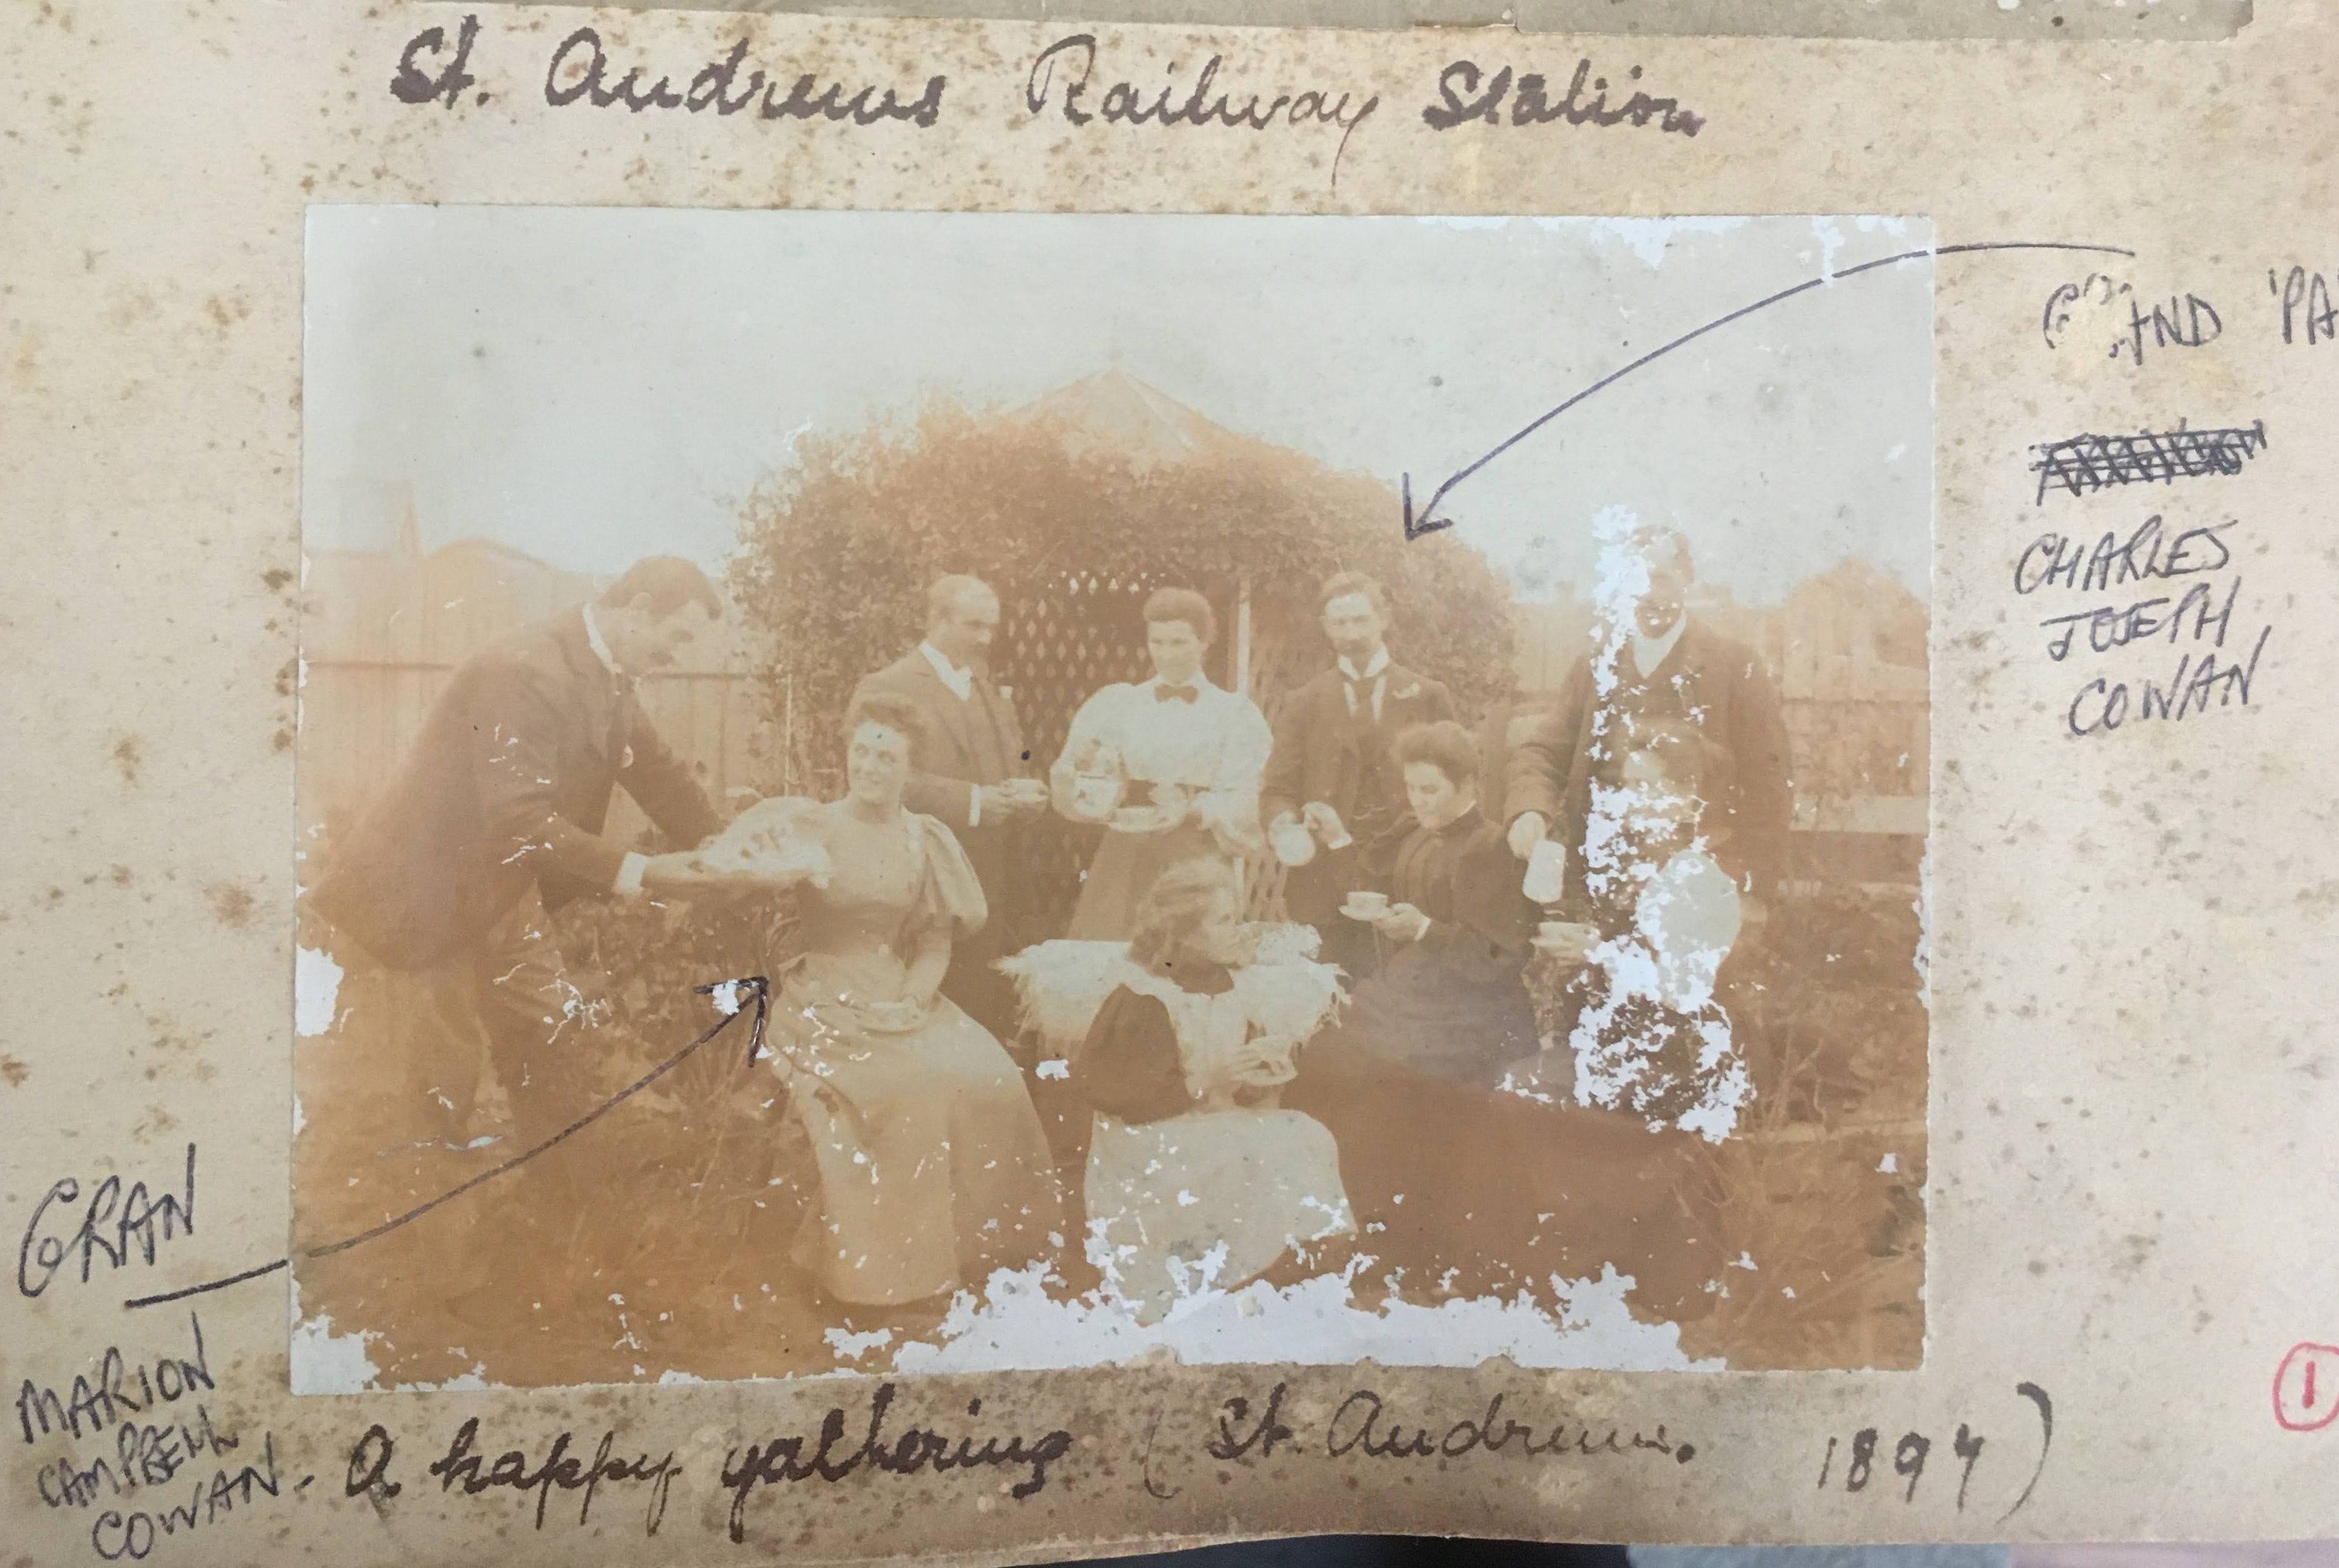 St. Andrews Railway Station
'PA'
CHARLES
JOSEPH
COWAN
GRAN
MARION
CAMPBELL
COWAN.
A happy gathering (St. Andrews. 1894)
1